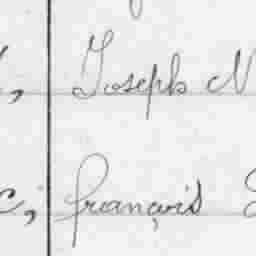 , Joseph N
c, françois